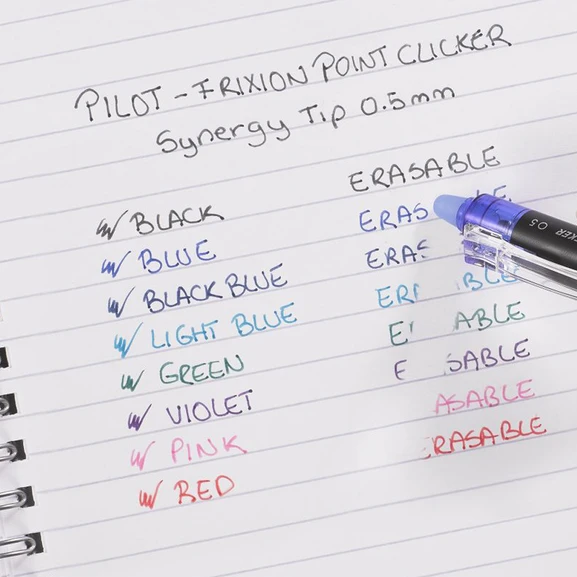 PILOT - FRIXION POINT CLICKER
Synergy Tip 0.5mm
ERASABLE
BLACK
ERAS LE
BLUE
ERAS
BLACK BLUE
ER BLE
LIGHT BLUE
E ABLE
GREEN
E SABLE
VIOLET
ASABLE
PINK
RASABLE
RED
KER 0.5